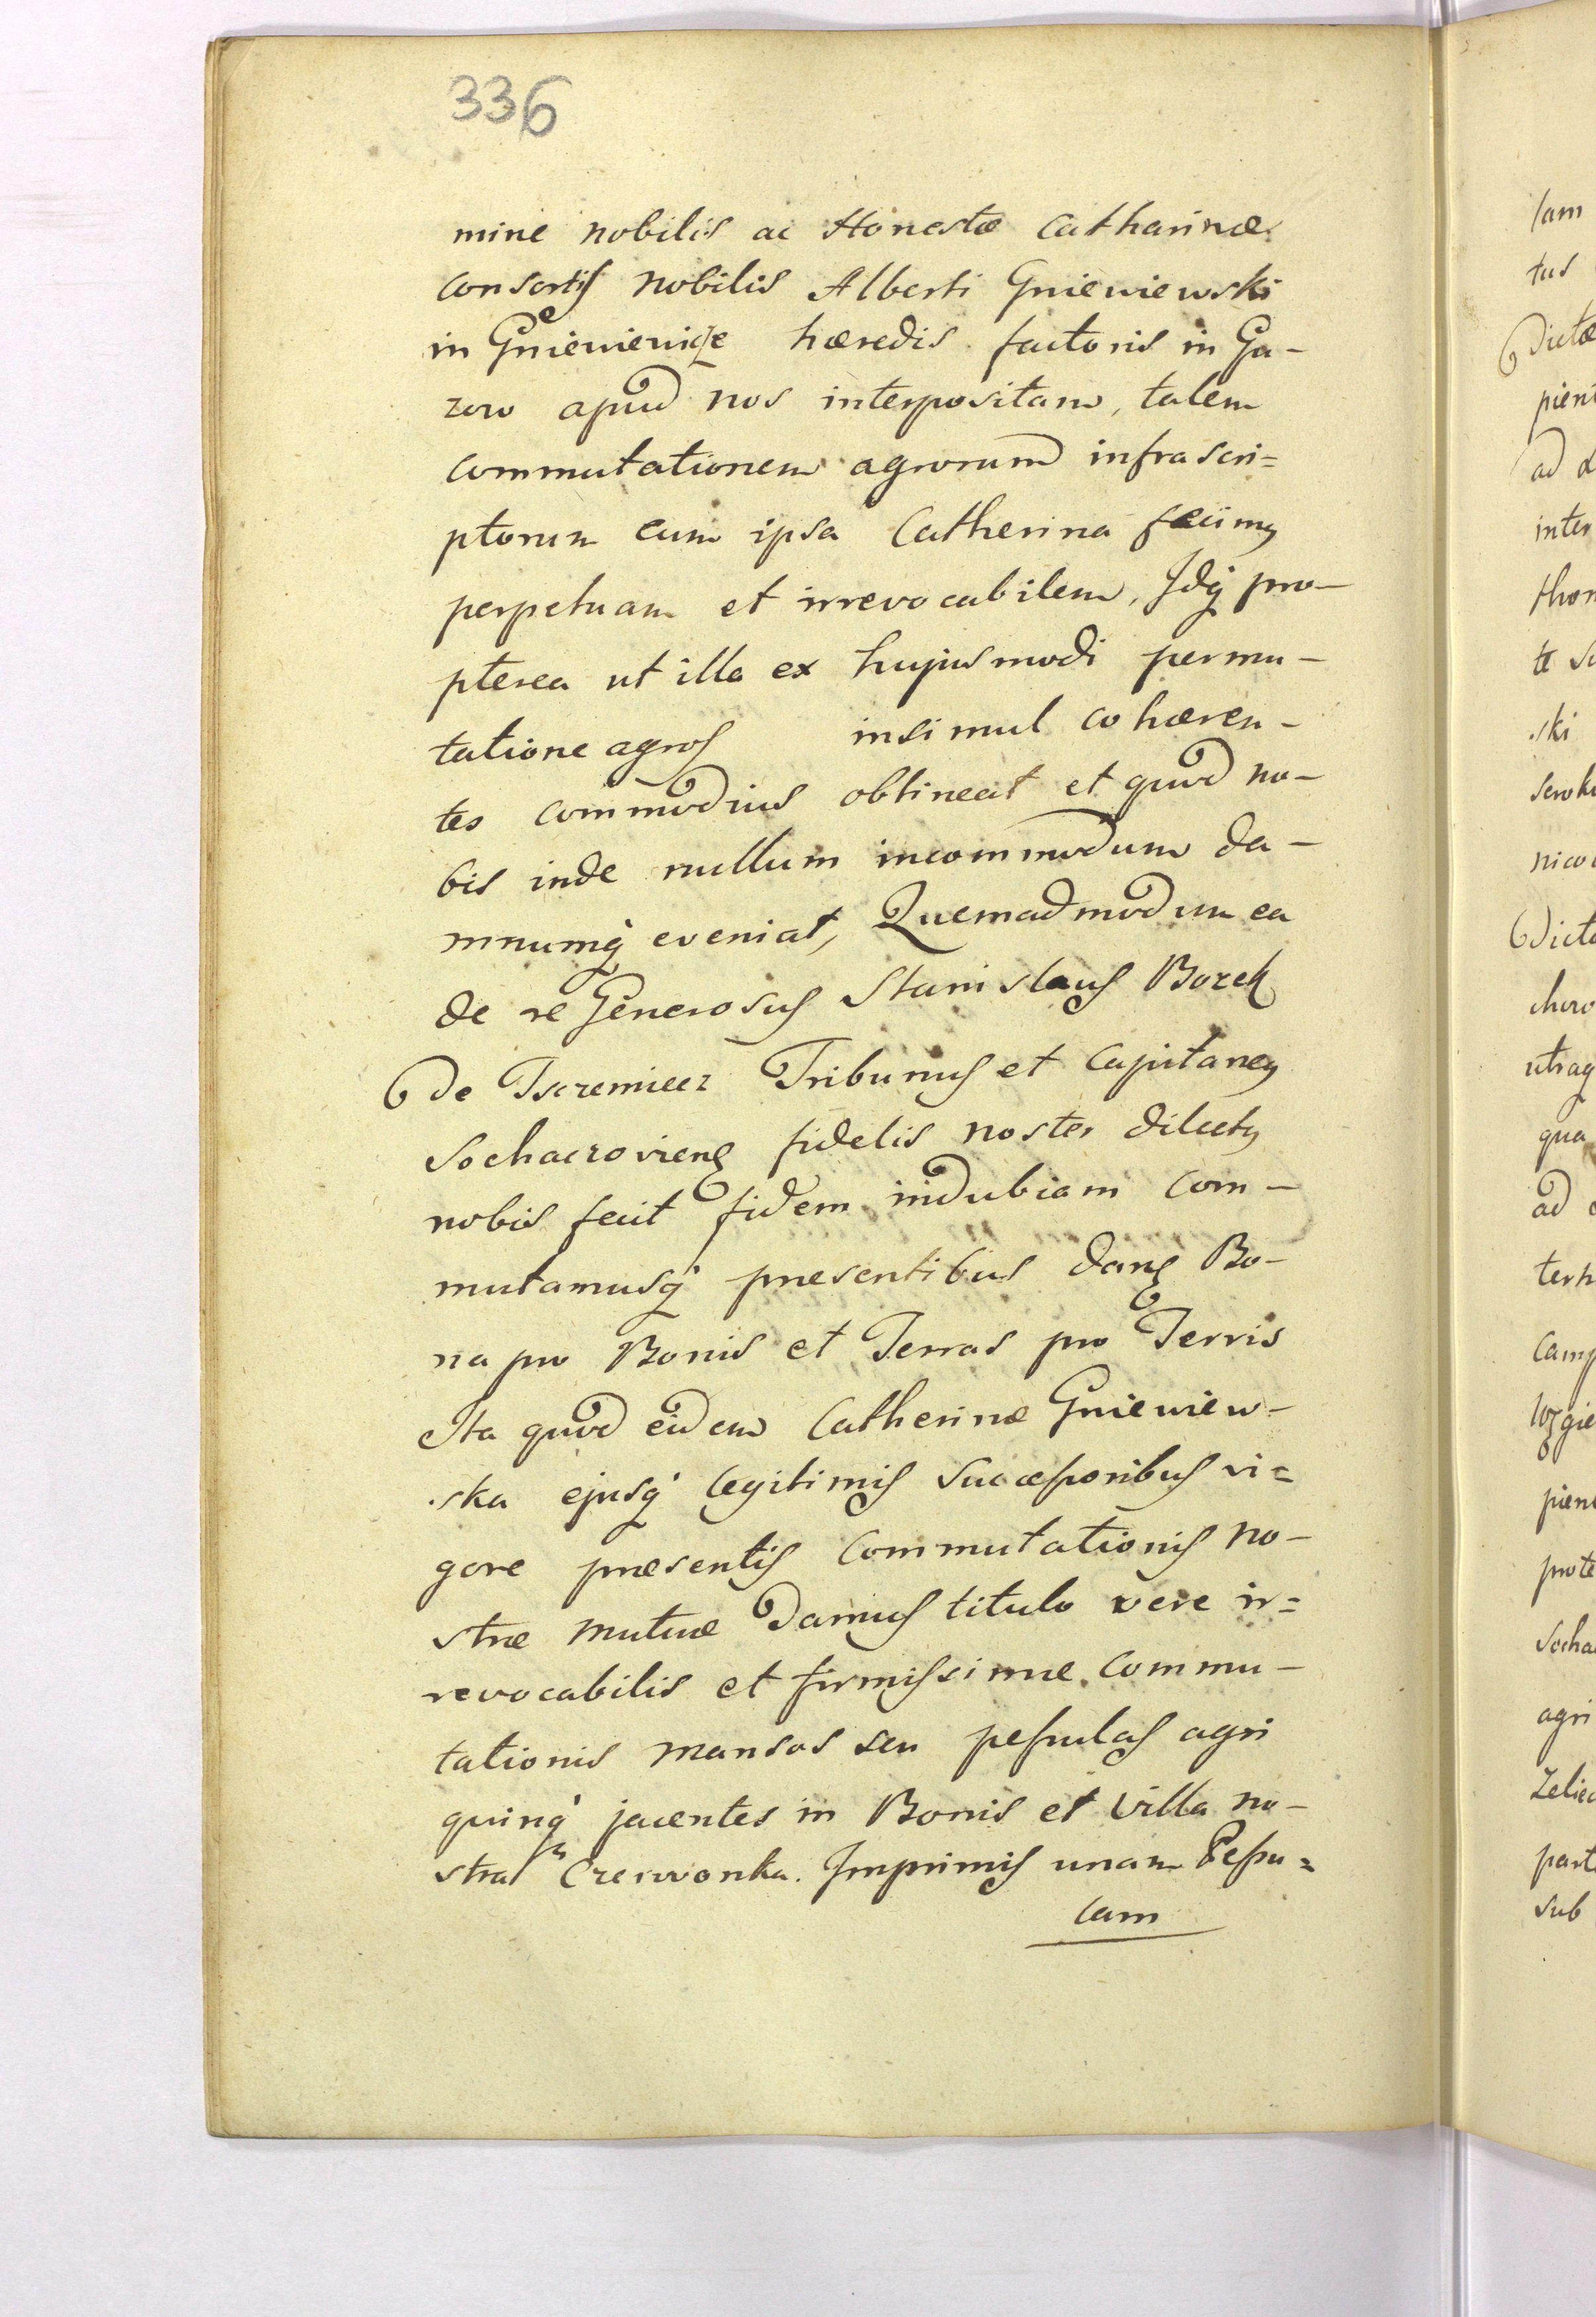 336
mine nobilis ac Honestæ Catharinæ
consortis nobilis Alberti Gniewiewski
in Gniewiewice hæredis factoris in Ga-
zow apud nos interpositam, talem
commutationem agrorum infrascri=
ptorum cum ipsa Catherina fecimus
perpetuam et irrevocabilem, Idq pro-
pterea ut illa ex hujusmodi permu-
tatione agros insimul cohæren-
tes commodius obtineat et quod no-
bis inde nullum incommodum da-
mnumq eveniat, Quemadmodum ea
de re Generosus Stanislaus Borek
De Tsczemicez Tribunus et Capitaneus
Sochaczoviens fidelis noster dilectus
nobis fecit fidem indubiam Com-
mutamusq præsentibus dans Bo-
na pro Bonis et Terras pro Terris
Ita quod eidem Catherinæ Gniewiew-
ska ejusq legitimis Successoribus vi=
gore præsentis Commutationis no-
stræ mutuæ Damus titulo vere ir=
revocabilis et firmissimæ commu-
tationis mansos seu pessulas agri
quinq jacentes in Bonis et Villa no-
stra Czerwonka. Imprimis unam Pessu=
lam
lam
tus
Dictæ
ad
inter
te
ski
nico
ad
agri
sub